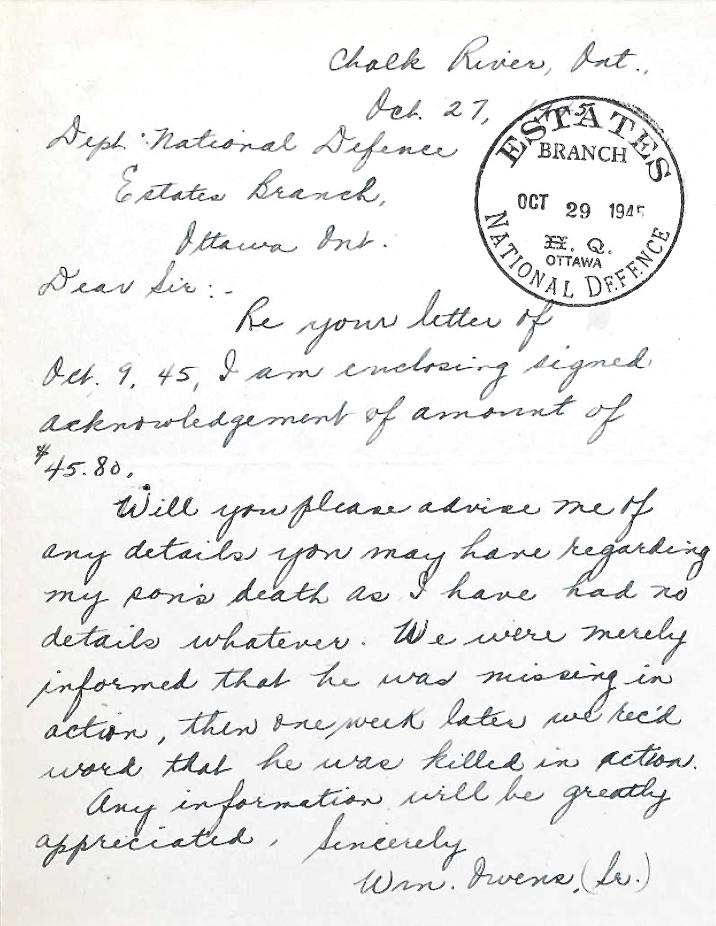 Chalk River, Ont.,
Oct. 27, 1945
Dept. National Defence
Estates Branch,
Ottawa Ont.
ESTATES
BRANCH
OCT 29 1945
H. Q.
OTTAWA
NATIONAL DEFENCE
Dear Sir:-
Re your letter of
Oct. 9, 45, I am enclosing signed
acknowledgement of amount of
$45.80.
Will you please advise me of
any details you may have regarding
my son's death as I have had no
details whatever. We were merely
informed that he was missing in
action, then one week later we rec'd
word that he was killed in action.
Any information will be greatly
appreciated. Sincerely
Wm. Owens, (Sr.)